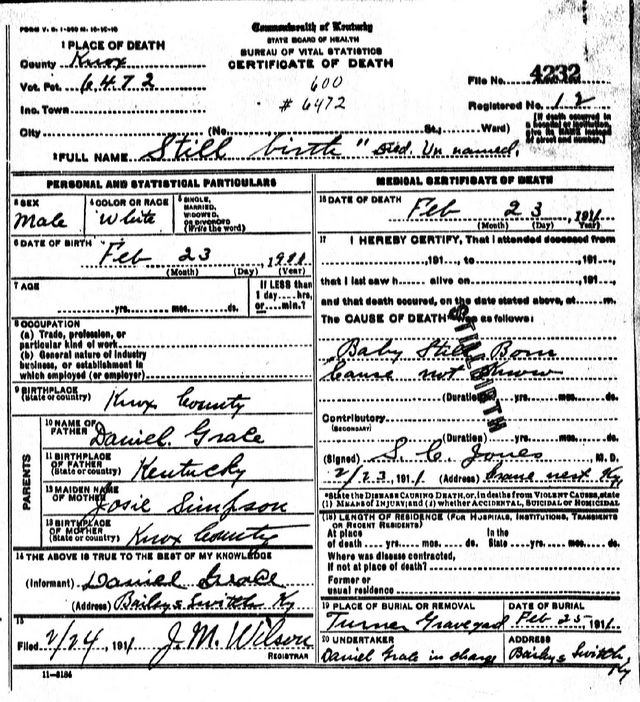 FORM V. S. 1-500 M. 10-15-10
Commonwealth of Kentucky
STATE BOARD OF HEALTH
BUREAU OF VITAL STATISTICS
CERTIFICATE OF DEATH
1 PLACE OF DEATH
County Knox
Vot. Pct. 6472
600
# 6472
File No. 4232
Inc. Town
Registered No. 12
City (No. St.; Ward)
[If death occurred in a hospital or institution, give its NAME instead of street and number.]
2 FULL NAME Still birth " Died. Un named,
PERSONAL AND STATISTICAL PARTICULARS
3 SEX
Male
4 COLOR OR RACE
White
5 SINGLE, MARRIED, WIDOWED, OR DIVORCED (Write the word)
6 DATE OF BIRTH
Feb 23, 1911
(Month) (Day) (Year)
7 AGE
yrs. mos. ds.
If LESS than 1 day....hrs, or....min.?
8 OCCUPATION
(a) Trade, profession, or
particular kind of work
(b) General nature of industry
business, or establishment in
which employed (or employer)
9 BIRTHPLACE
(State or country) Knox County
PARENTS
10 NAME OF FATHER Daniel Grace
11 BIRTHPLACE OF FATHER (State or country) Kentucky
12 MAIDEN NAME OF MOTHER Josie Simpson
13 BIRTHPLACE OF MOTHER (State or country) Knox County
14 THE ABOVE IS TRUE TO THE BEST OF MY KNOWLEDGE
(Informant) Daniel Grace
(Address) Bailys Switch Ky
15
Filed 2/24, 1911 J. M. Wilson
REGISTRAR
11-3184
MEDICAL CERTIFICATE OF DEATH
16 DATE OF DEATH
Feb 23, 1911
(Month) (Day) (Year)
17 I HEREBY CERTIFY, That I attended deceased from
, 191..., to , 191...,
that I last saw h... alive on , 191...,
and that death occured, on the date stated above, at m.
The CAUSE OF DEATH was as follows:
STILLBIRTH
Baby Still Born
Cause not know
(Duration) yrs. mos. ds.
Contributory
(SECONDARY)
(Duration) yrs. mos. ds.
(Signed) S. C. Jones M. D.
2/23, 1911 (Address) Ky
*State the DISEASE CAUSING DEATH, or, in deaths from VIOLENT CAUSES, state
(1) MEANS OF INJURY; and (2) whether ACCIDENTAL, SUICIDAL OR HOMICIDAL.
(18) LENGTH OF RESIDENCE (FOR HOSPITALS, INSTITUTIONS, TRANSIENTS
OR RECENT RESIDENTS)
At place of death yrs. mos. ds. In the State yrs. mos. ds.
Where was disease contracted,
if not at place of death?
Former or
usual residence
19 PLACE OF BURIAL OR REMOVAL
Turner Graveyard
DATE OF BURIAL
Feb 25, 1911
20 UNDERTAKER
Daniel Grace in charge
ADDRESS
Bailys Switch, Ky